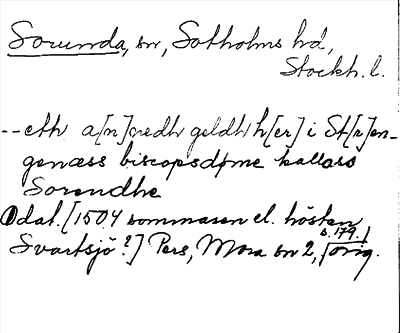 Sorunda, sn, Sotholms hd,
Stockh. l.
-- eth a[n]nedh geldh h[er] i St[r]en-
genæss biscopsdøme kallass
Sorendhe
Odat. [1504 sommaren el. hösten
Svartsjö?] Pers, Mora sn 2, s. 179. orig.